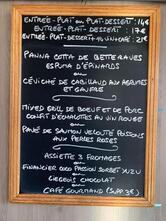 ENTRÉE-PLAT ou PLAT-DESSERT: 14€
ENTRÉE-PLAT-DESSERT: 17€
ENTRÉE-PLAT-DESSERT+1 VIN+CAFÉ: 21€
PANNA COTTA DE BETTERAVES
ESPUMA D'ÉPINARDS
OU
CÉVICHÉ DE CABILLAUD AUX AGRUMES
ET GAUFRE
MIXED GRIL DE BOEUF ET DE PORC
CONFIT D'ÉCHALOTES AU VIN ROUGE
OU
PAVÉ DE SAUMON VELOUTÉ POISSONS
AUX PERLES ROSES
ASSIETTE 3 FROMAGES
OU
FINANCIER COCO PASSION SORBET YUZU
OU
CHOCOLAT
OU
CAFÉ GOURMAND (SUPP.3€)